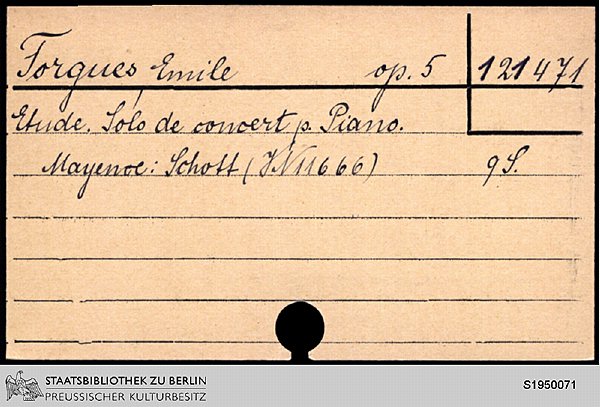 Forgues Emile op. 5 121471
Etude. Solo de concert p. Piano.
Mayence: Schott (VN 11666) 9 S.
STAATSBIBLIOTHEK ZU BERLIN
PREUSSISCHER KULTURBESITZ
S1950071